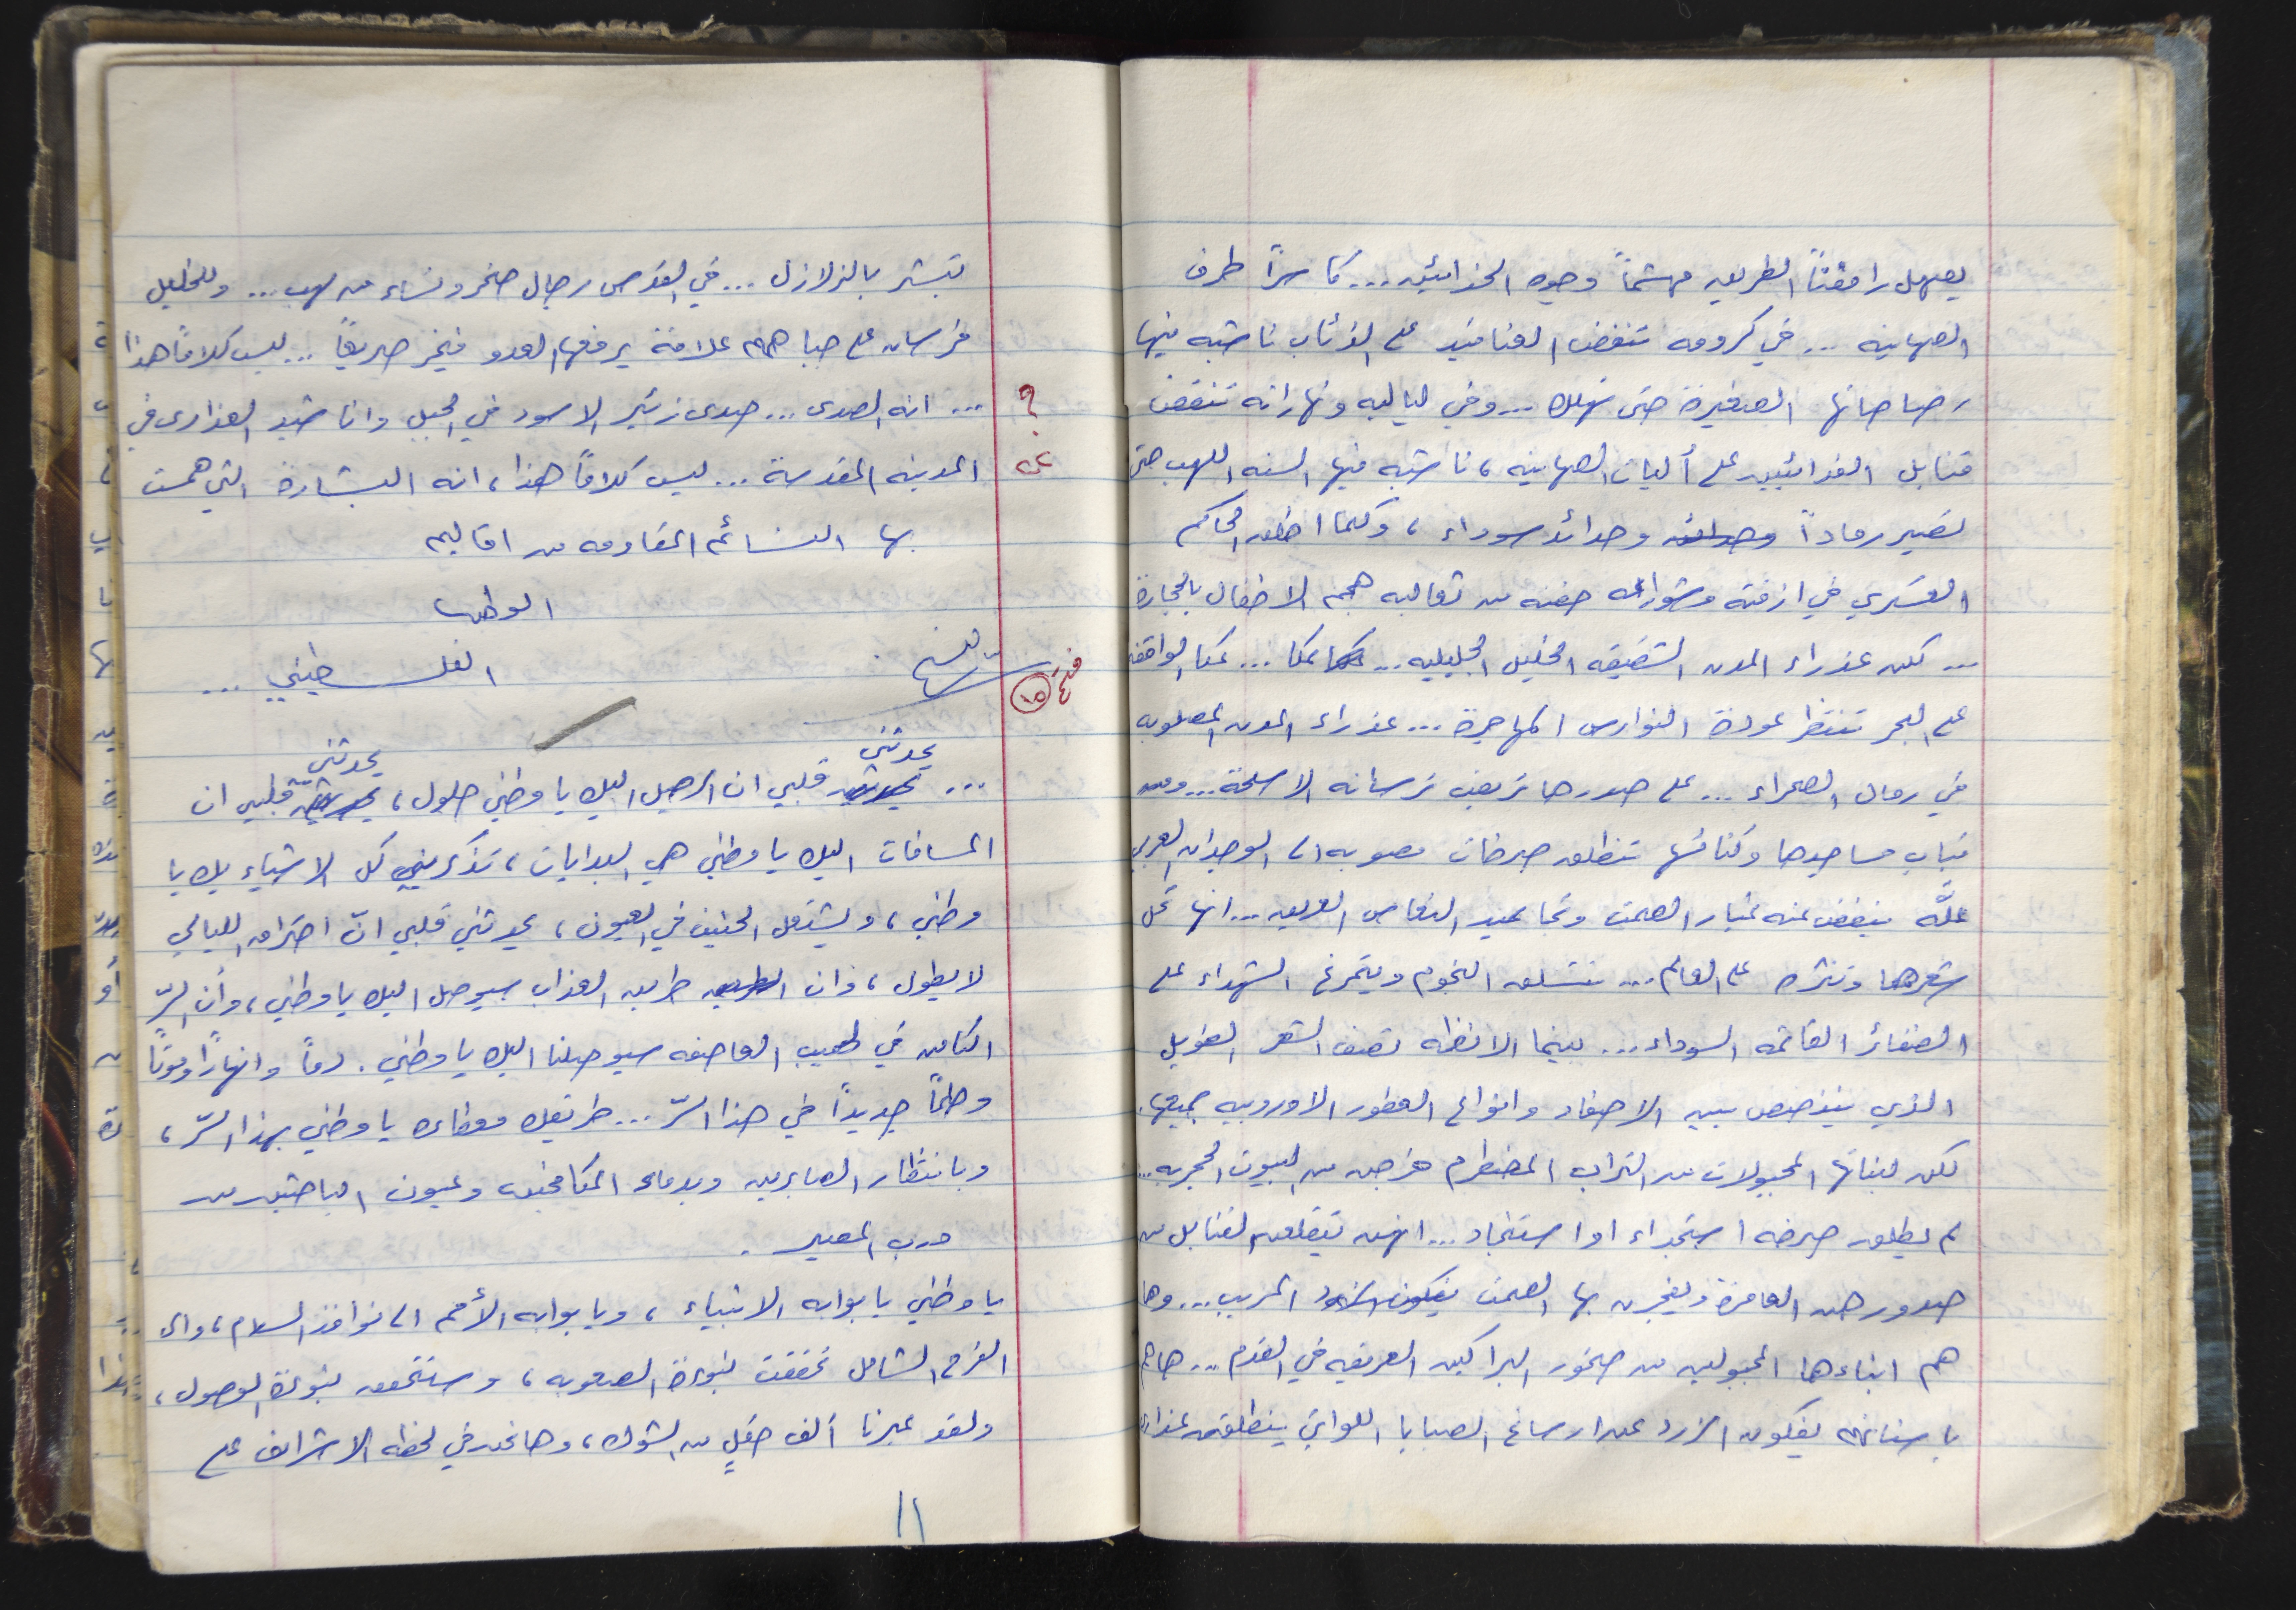 يصهل رافضاً الطريق مهشماً وجوه الخزائين... كاسراً طرف
الصهاينه... في كرومه تنقض العناقيد على الذئاب ناشبه فيها
رصاصاتها الصغيرة حتى تهلك... وفي لياليه ونهاراته تنقض
قنابل الفدائيين على أليات الصهاينه، ناشبه فيها السنه اللهب حتى
تصير رماداً وحدائد سوداء، وكلما اطلق الحاكم
العسكري في ازقته وشوارعه حفنه من ثعالبه هجم الاطفال بالحجارة
... لكن عذراء المدن الشقيقه الخليل الجليليه... عكا... عكا الواقفه
على البحر تنتظر عودة النوارس المهاجرة... عذراء المدن المصلوبه
في رمال الصحراء... على صدرها تربض ترسانه الاسلحة... ومن
قباب مساجدها وكنائسها تنطلق صرخات مصوبه الى الوجدان العربي
علَّه ينفض عنه غبار الصمت وتجاعيد النعاس العريق... انها تحل
شعرها وتنثره على العالم... تتسلق النجوم ويتمرغ الشهداء على
الضفائر الفاحمه السوداء... بينما الانظمه تصف الشعر الطويل
الذي يتفصص بين الاصفاد وانواع العطور الاوروبيه جميعها.
لكن بناتها المجبولات من التراب المضطرم خرجن من البيوت الحجريه...
لم يطلقن صرخه استجداء او استنجاد... انهن يقتلعن القنابل من
صدورهن العامرة ويفجرن بها الصمت المريب... وها
هم ابناءها المجبولين من صخور البراكين العريقه في القدم... هاهم
باسنانهم يفكون الزرد عن ارساغ الصبايا اللواتي ينطلقن عذارى
تبشر بالزلازل... في القدس رجال صخر ونساء من لهب... وللخليل
فرسان على جباههم علامة يرفعها العدو فيخر صريعاً... ليس كلاماً هذا
؟
... انه الصدى... صدى زئير الاسود في الجبل واناشيد العذارى في
المدينه المقدسة... ليس كلاماً هذا، انه البشارة التي همست
بها النسائم القادمه من اقاليم
الوطن
الفلسطيني...
١٥
... يحدثني قلبي ان الرحيل اليك يا وطني حلول، يحدثني قلبي ان
المسافات اليك يا وطني هي البدايات، تذكرني كل الاشياء بك يا
وطني، ويشتعل الحنين في العيون، يحدثني قلبي انّ احتراق الليالي
لا يطول، وان طريق العذاب سيوصل اليك يا وطني، وأن السرّ
الكامن في لهيب العاصفه سيوصلنا اليك يا وطني. دماً وانهاراً وموتاً
وحلماً جديداً في هذا السرّ... طريقك معطاء يا وطني بهذا السرّ،
وبانتظار الصابرين وبدماء المكافحين وعيون الباحثين عن
درب المصير.
يا وطني يا بوابه الانبياء، ويا بوابه الأمم الى نوافذ السلام، والى
الفرح الشامل تحققت نبوءة الصعوبه، وستتحقق نبوءة الوصول،
ولقد عبرنا ألف حقلٍ من الشوك، وها نحن في لحظه الاشراف على
١١